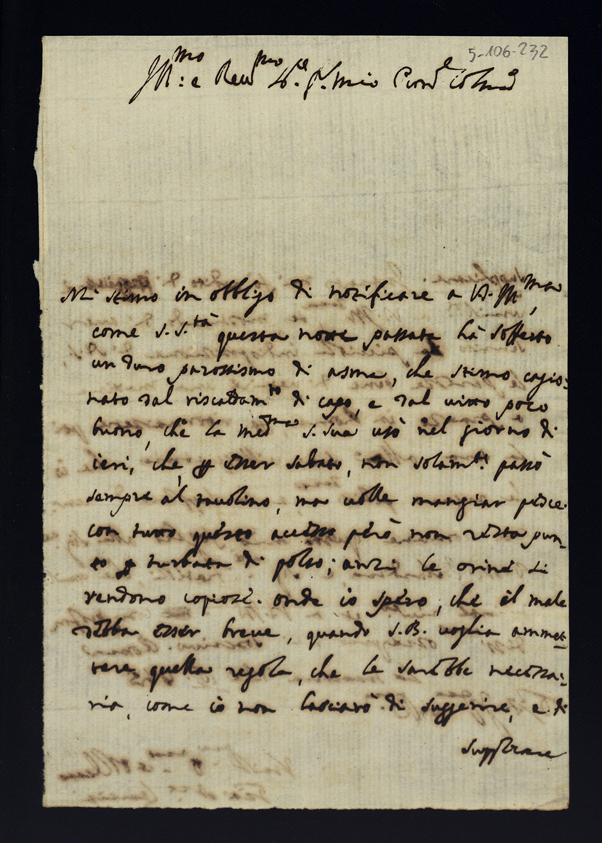 5-106-232
Ill.mo e Rev.mo Sig.re Sig.r mio P͞ron Col.mo
Mi stimo in obbligo di notificare a V.S. Ill.ma
come S. S.tà questa notte passata hà sofferto
un duro parossismo di asma, che stimo cagio:
nato dal riscaldam.to di capo, e dal vitto poco
buono, che la med.ma S. Sua usò nel giorno di
ieri, che p esser sabato, non solam.te passò
sempre al tavolino, ma volle mangiar pesce.
con tutto questo accesso però non resta pun-
to turbata di polso; anzi le orine si
rendono copiose. onde io spero, che il male
debba esser breve, quando S.B. voglia ammet-
tere quella regola, che le sarebbe necessa-
ria, come io non lasciarò di suggerire, e di
supplicare